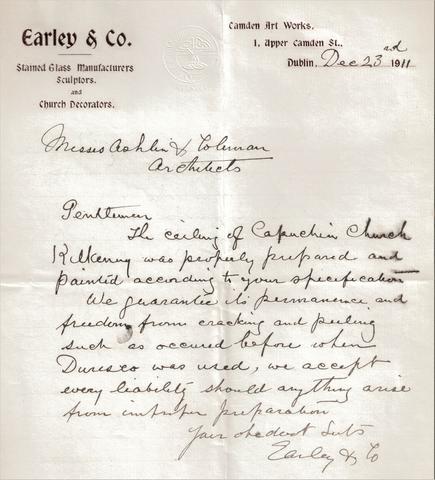 Earley & Co.
Stained Glass Manufacturers
Sculptors.
and
Church Decorators.
Camden Art Works.
1, Upper Camden St.,
Dublin, Dec 23rd 1911
Messrs Ashlin & Coleman
Architects
Gentlemen
The ceiling of Capuchin Church
Kilkenny was properly prepared and
painted according to your specification
We guarantee its permanence and
freedom from cracking and peeling
such as occured before when
Duresco was used, we accept
every liability should anything arise
from improper preparation
Your obedient Svts
Earley & Co